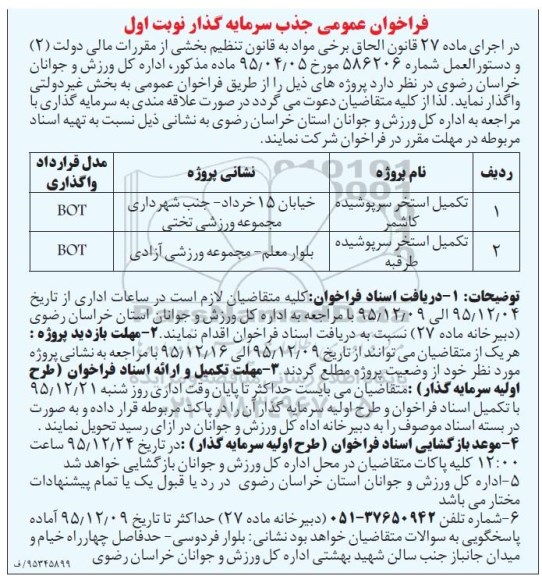 فراخوان عمومی جذب سرمایه گذار نوبت اول
در اجرای ماده ۲۷ قانون الحاق برخی مواد به قانون تنظیم بخشی از مقررات مالی دولت (۲)
و دستورالعمل شماره ۵۸۶۲۰۶ مورخ ۹۵.۰۴.۰۵ ماده مذکور، اداره کل ورزش و جوانان
خراسان رضوی در نظر دارد پروژه های ذیل را از طریق فراخوان عمومی به بخش غیردولتی
واگذار نماید. لذا از کلیه متقاضیان دعوت می گردد در صورت علاقه مندی به سرمایه گذاری با
مراجعه به اداره کل ورزش و جوانان استان خراسان رضوی به نشانی ذیل نسبت به تهیه اسناد
مربوطه در مهلت مقرر در فراخوان شرکت نمایند.
ردیف نام پروژه نشانی پروژه مدل قرارداد واگذاری
۱ تکمیل استخر سرپوشیده کاشمر خیابان ۱۵ خرداد- جنب شهرداری مجموعه ورزشی تختی BOT
۲ تکمیل استخر سرپوشیده طرقبه بلوار معلم- مجموعه ورزشی آزادی BOT
توضیحات: ۱-دریافت اسناد فراخوان:کلیه متقاضیان لازم است در ساعات اداری از تاریخ
۹۵/۱۲/۰۴ الی ۹۵/۱۲/۰۹ با مراجعه به اداره کل ورزش و جوانان استان خراسان رضوی
(دبیرخانه ماده ۲۷) نسبت به دریافت اسناد فراخوان اقدام نمایند.۲-مهلت بازدید پروژه :
هریک از متقاضیان می توانند از تاریخ ۹۵/۱۲/۰۹ الی ۹۵/۱۲/۱۶ با مراجعه به نشانی پروژه
مورد نظر خود از وضعیت پروژه مطلع گردند.۳-مهلت تکمیل و ارائه اسناد فراخوان (طرح
اولیه سرمایه گذار) :متقاضیان می بایست حداکثر تا پایان وقت اداری روز شنبه ۹۵/۱۲/۲۱
با تکمیل اسناد فراخوان و طرح اولیه سرمایه گذار آن را در پاکت مربوطه قرار داده و به صورت
در بسته اسناد موصوف را به دبیرخانه اداه کل ورزش و جوانان در ازای رسید تحویل نمایند .
۴-موعد بازگشایی اسناد فراخوان (طرح اولیه سرمایه گذار) :در تاریخ ۹۵/۱۲/۲۴ ساعت
۱۲:۰۰ کلیه پاکات متقاضیان در محل اداره کل ورزش و جوانان بازگشایی خواهد شد
۵-اداره کل ورزش و جوانان استان خراسان رضوی در رد یا قبول یک یا تمام پیشنهادات
مختار می باشد
۶-شماره تلفن ۳۷۶۵۰۹۴۲-۰۵۱ (دبیرخانه ماده ۲۷) حداکثر تا تاریخ ۹۵/۱۲/۰۹ آماده
پاسخگویی به سوالات متقاضیان خواهد بود نشانی: بلوار فردوسی- حدفاصل چهارراه خیام و
میدان جانباز جنب سالن شهید بهشتی اداره کل ورزش و جوانان خراسان رضوی
۹۵۳۴۵۸۹۹/ف